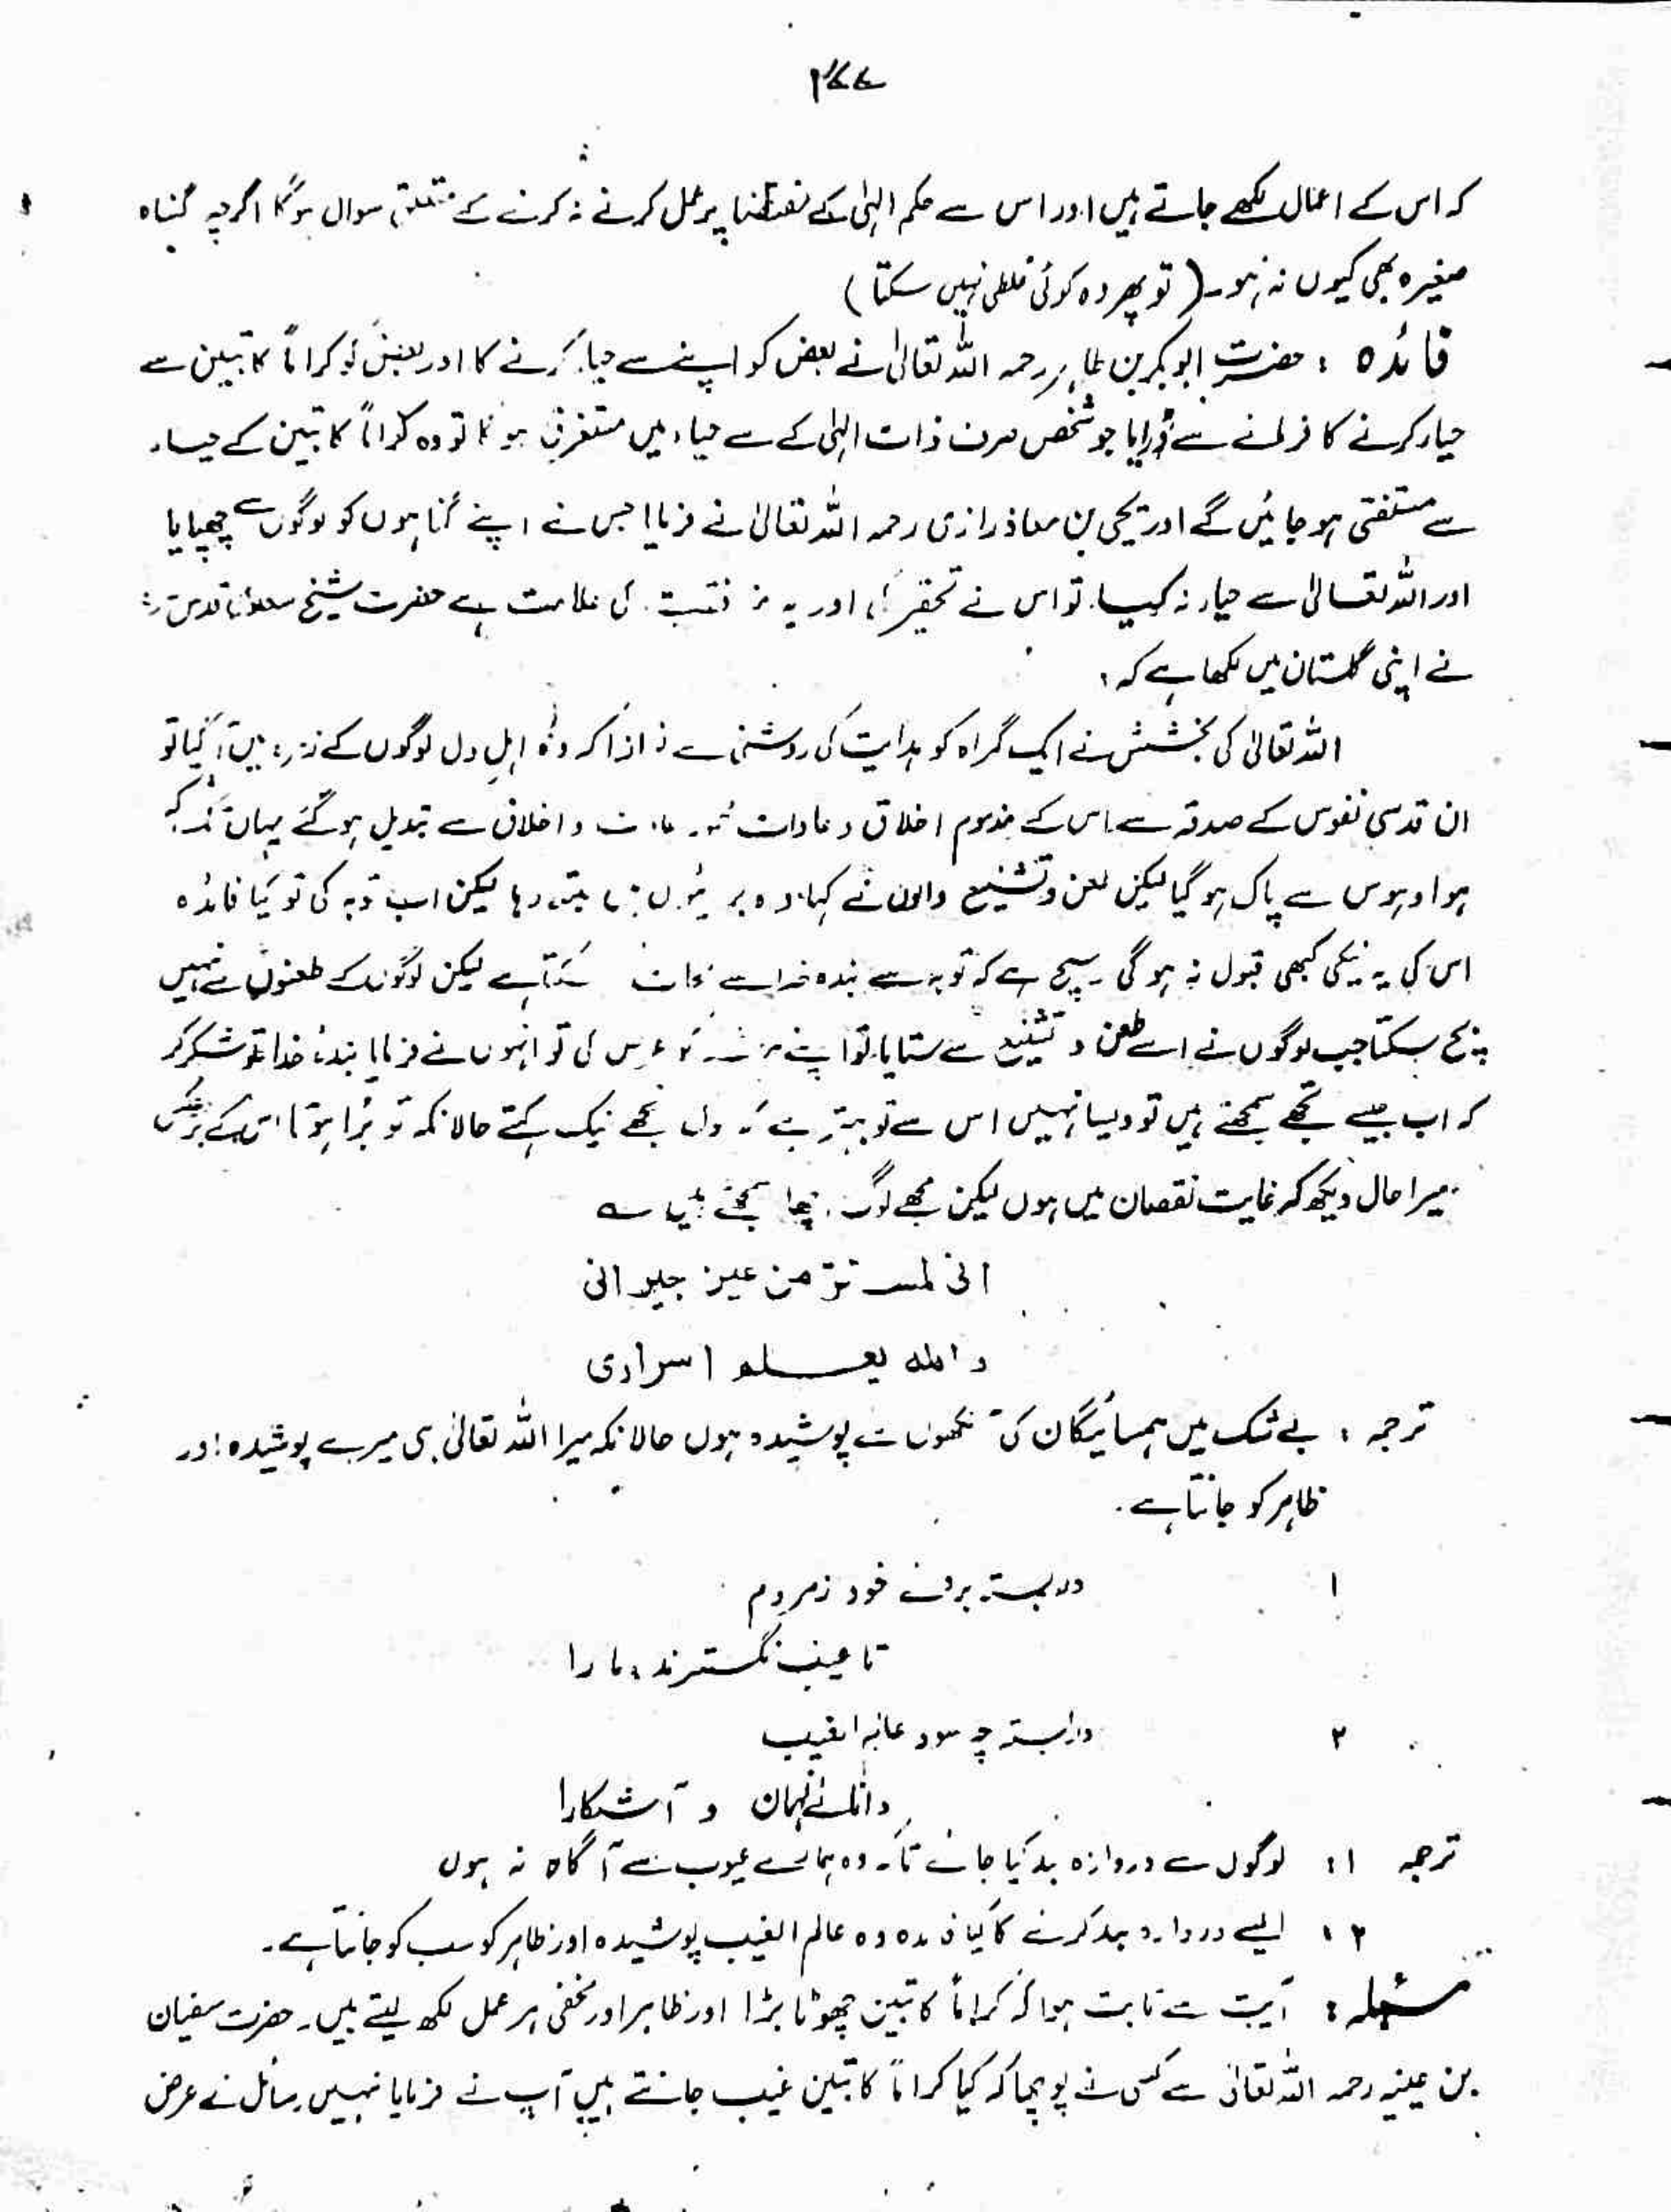 ۴۷۷
کہ اس کے اعمال لکھے جاتے ہیں اور اس سے حکم الہٰی کے تقاضا پر عمل کرنے نہ کرنے کے متعلق سوال ہوگا اگرچہ گناہ
صغیرہ بھی کیوں نہ ہو۔ (تو پھر وہ کوئی غلطی نہیں سکتا)
فائدہ : حضرت ابوبکر بن طاہر رحمہ اللہ تعالیٰ نے بعض کو اپنے سے حیا کرنے کا اور بعض کو کراماً کاتبین سے
حیا کرنے کا فرمانے سے ڈرایا جو شخص صرف ذات الہٰی کے سے حیا میں مستغرق ہوگا تو وہ کراماً کاتبین کے حیا
سے مستغنی ہو جائیں گے اور یحیٰی بن معاذ رازی رحمہ اللہ تعالیٰ نے فرمایا جس نے اپنے گناہوں کو لوگوں سے چھپایا
اور اللہ تعالیٰ سے حیا نہ کیا۔ تو اس نے تحقیر کی اور یہ کی علامت ہے حضرت شیخ سعدی قدس
نے اپنی گلستان میں لکھا ہے کہ
اللہ تعالیٰ کی بخشش نے ایک گمراہ کو ہدایت کی روشنی سے نوازا کہ وہ اہل دل لوگوں کے زمرہ میں آ گیا تو
ان قدسی نفوس کے صدقہ سے اس کے مذموم اخلاق و عادات و اخلاق سے تبدیل ہو گئے یہاں تک کہ
ہوا و ہوس سے پاک ہو گیا لیکن لعن و تشنیع والوں نے کہا وہ میں مبتلا رہا لیکن اب توبہ کی تو کیا فائدہ
اس کی یہ نیکی کبھی قبول نہ ہوگی ۔ سچ ہے کہ توبہ سے بندہ خدا سے نجات سکتا ہے لیکن لوگوں کے طعنوں سے نہیں
بچ سکتا جب لوگوں نے اسے طعن و تشنیع سے ستایا تو اپنے کو عرض کی تو انہوں نے فرمایا بندۂ خدا تو شکر کر
کہ اب جیسے تجھے سمجھتے ہیں تو ویسا نہیں اس سے تو بہتر ہے کہ تجھے نیک کہتے حالانکہ تو بُرا ہوتا اس کے برعکس
میرا حال دیکھ کر غایت نقصان میں ہوں لیکن مجھے لوگ اچھا سمجھتے ہیں ؎
انی لمستتر من عین جیرانی
واللہ یعلم اسراری
ترجمہ : بے شک میں ہمسائیگان کی آنکھوں سے پوشیدہ ہوں حالانکہ میرا اللہ تعالیٰ ہی میرے پوشیدہ اور
ظاہر کو جانتا ہے ۔
۱ در بستہ بروئے خود زمردم
تا عیب نگسترند ما را
۲ در بستہ چہ سود عالم الغیب
دانائے نہان و آشکارا
ترجمہ ۱: لوگوں سے دروازہ بند کیا جائے تاکہ وہ ہمارے عیوب سے آگاہ نہ ہوں
۲: ایسے دروازہ بند کرنے کا کیا فائدہ وہ عالم الغیب پوشیدہ اور ظاہر کو سب کو جانتا ہے ۔
مسئلہ : آیت سے ثابت ہوا کہ کراماً کاتبین چھوٹا بڑا اور ظاہر اور مخفی ہر عمل لکھ لیتے ہیں ۔ حضرت سفیان
بن عینیہ رحمہ اللہ تعالیٰ سے کسی نے پوچھا کہ کیا کراماً کاتبین غیب جانتے ہیں آپ نے فرمایا نہیں سائل نے عرض